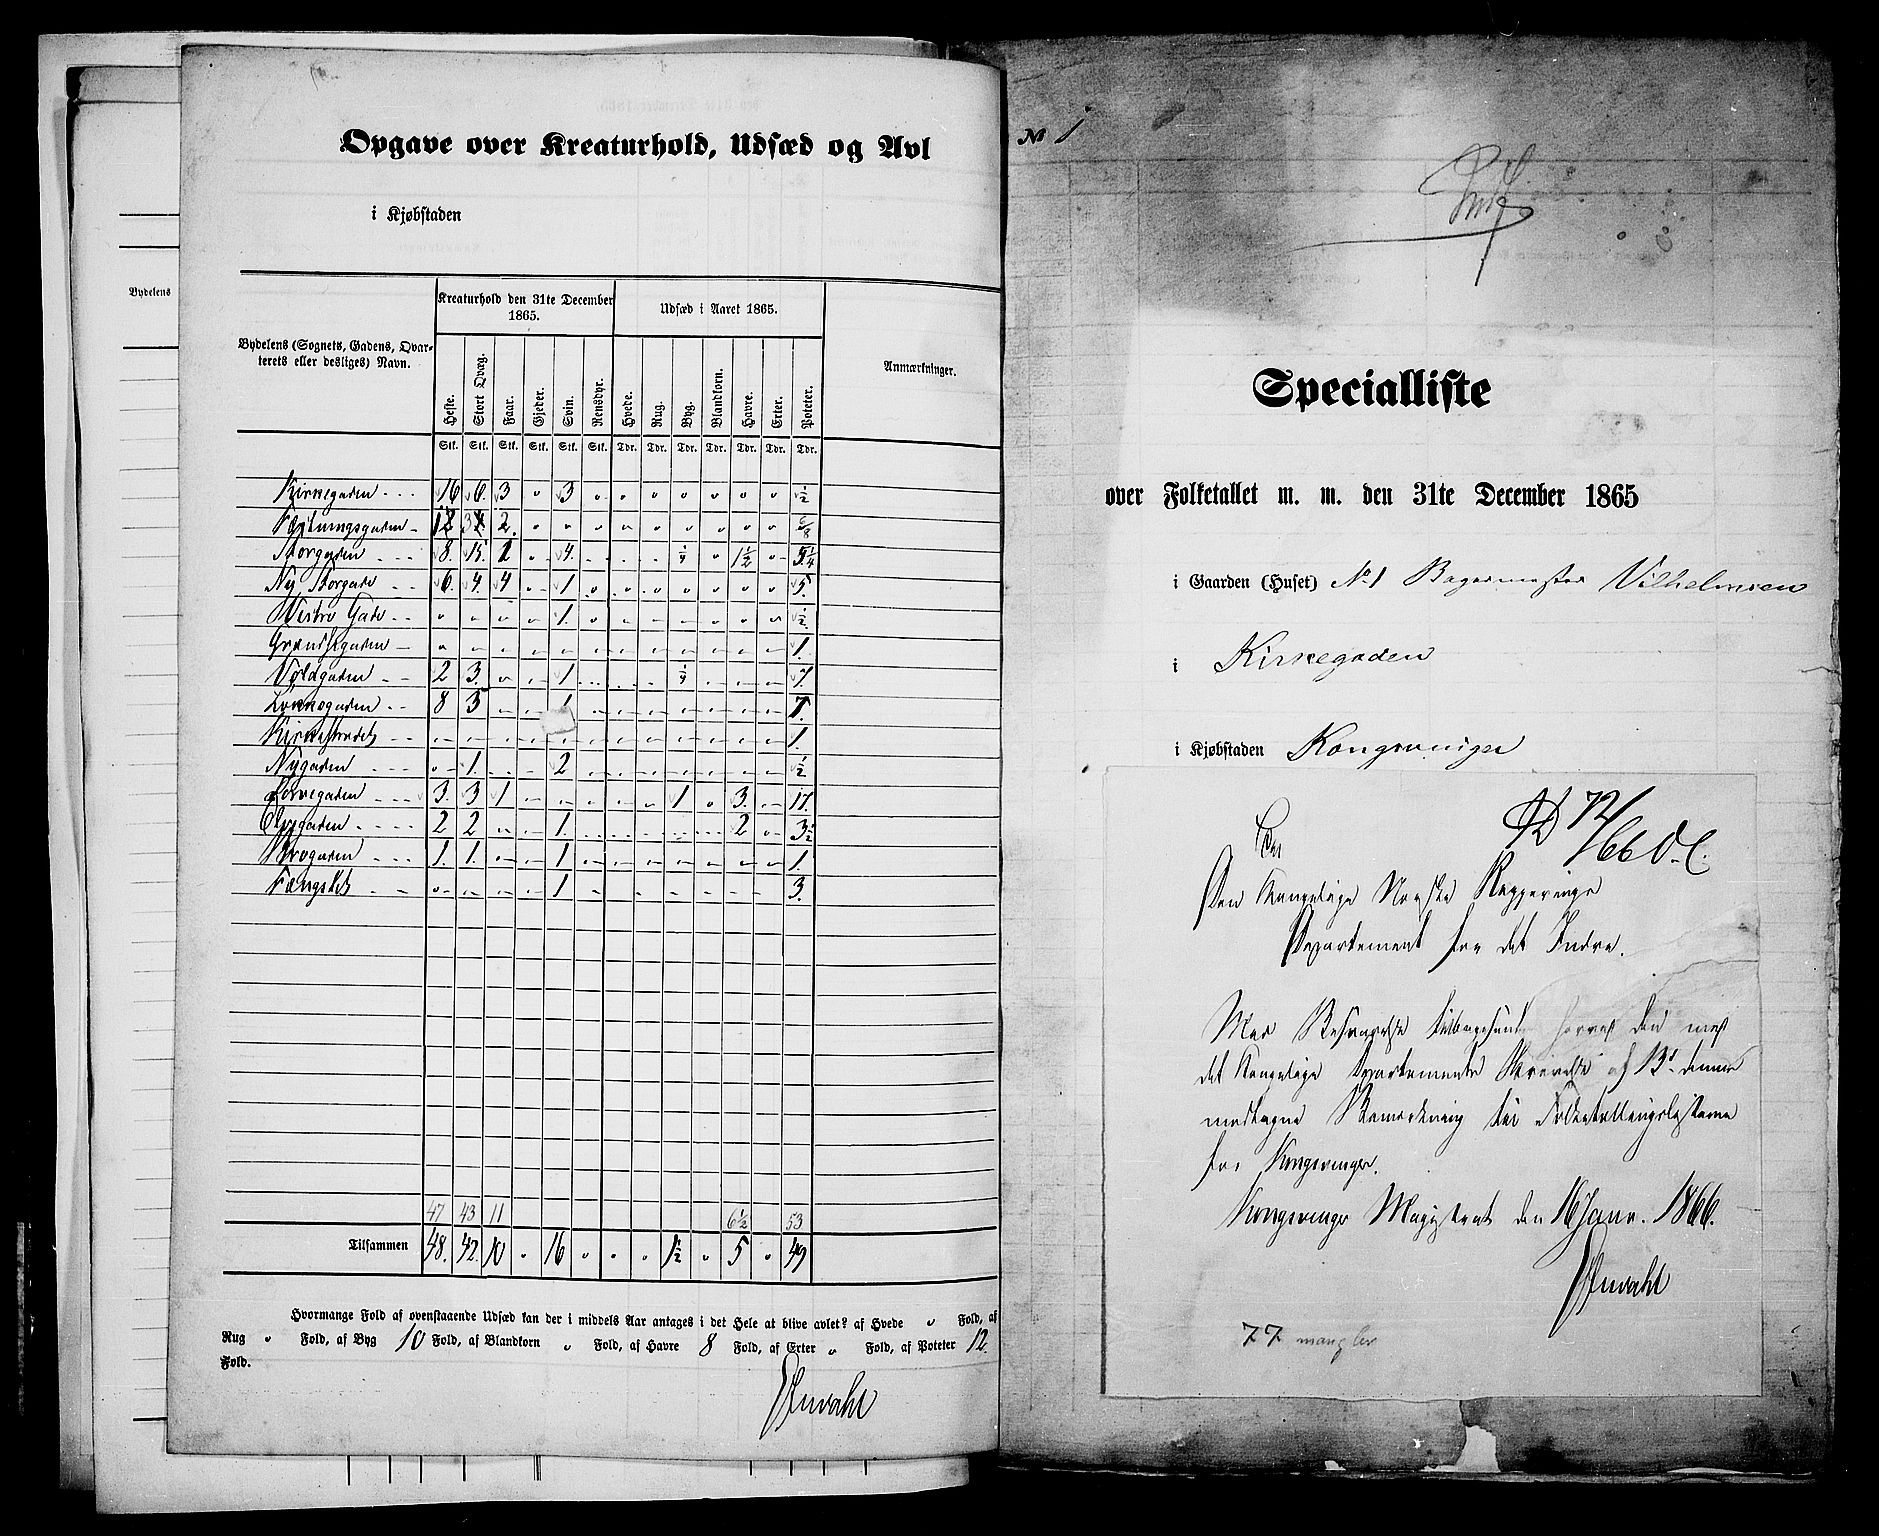 Opgave over Kreaturhold, Udsæd og Avl
i Kjøbstaden
Bydelens
Bydelens (Sognets, Gadens, Qvarterets eller desliges) Navn.
Kreaturhold den 31te December 1865.
Udsæd i Aaret 1865.
Anmærkninger.
Heste. Stort Qvæg. Faar. Gjeder. Svin. Rensdyr. Hvede. Rug. Byg. Blandkorn. Havre. Erter. Poteter.
Stk. Stk. Stk. Stk. Stk. Stk. Tdr. Tdr. Tdr. Tdr. Tdr. Tdr. Tdr.
Kirkegaden 16 6. 3 " 3 " " " " " " " ½
Fæstningsgaden 2. " " " " " " " " "
Storgaden 8. 15. 1 " 4. ¼ " 1½ "
Ny Storgade 6. 4. 4 " 1 " " " " " " " 5.
Vestre Gade " " " " 1. " " " " " " " ½.
Grændsegaden 1.
Voldgaden 2 3. " 1 ¼ 7.
8 5 1 7.
Kirkestrædet 1.
Nygaden " 1. 2 ½
3. 3 1 1 " 3. 17.
Elvegaden 2 2 1. 2 " 3½
Brogaden 1. 1. 1 1.
Fængslet " 1 3.
47 43 11 6½ 53
Tilsammen 48. 42. 10 " 16 " " " 1½ " 5 " 49
Hvormange Fold af ovenstaaende Udsæd kan der i middels Aar antages i det Hele at blive avlet? af Hvede " Fold, af
Rug " Fold, af Byg 10 Fold, af Blandkorn " Fold, af Havre 8 Fold, af Erter " Fold, af Poteter 12.
Fold.
№ 1
Specialliste
over Folketallet m. m. den 31te December 1865
i Gaarden (Huset) No 1 Bagermester Vilhelmsen
i Kirkegaden
i Kjøbstaden Kongsvinger
72/66
Den Kongelige Norske Regjerings
Departement for det Indre.
Med Besvarelse tilbagesendt den med
det Kongelige Departements Skrivelse af 13de dennes
modtagne Bemærkning til Folketællingslisterne
for Kongsvinger.
Kongsvinger Magistrat den 16 Janr. 1866.
77 mangler